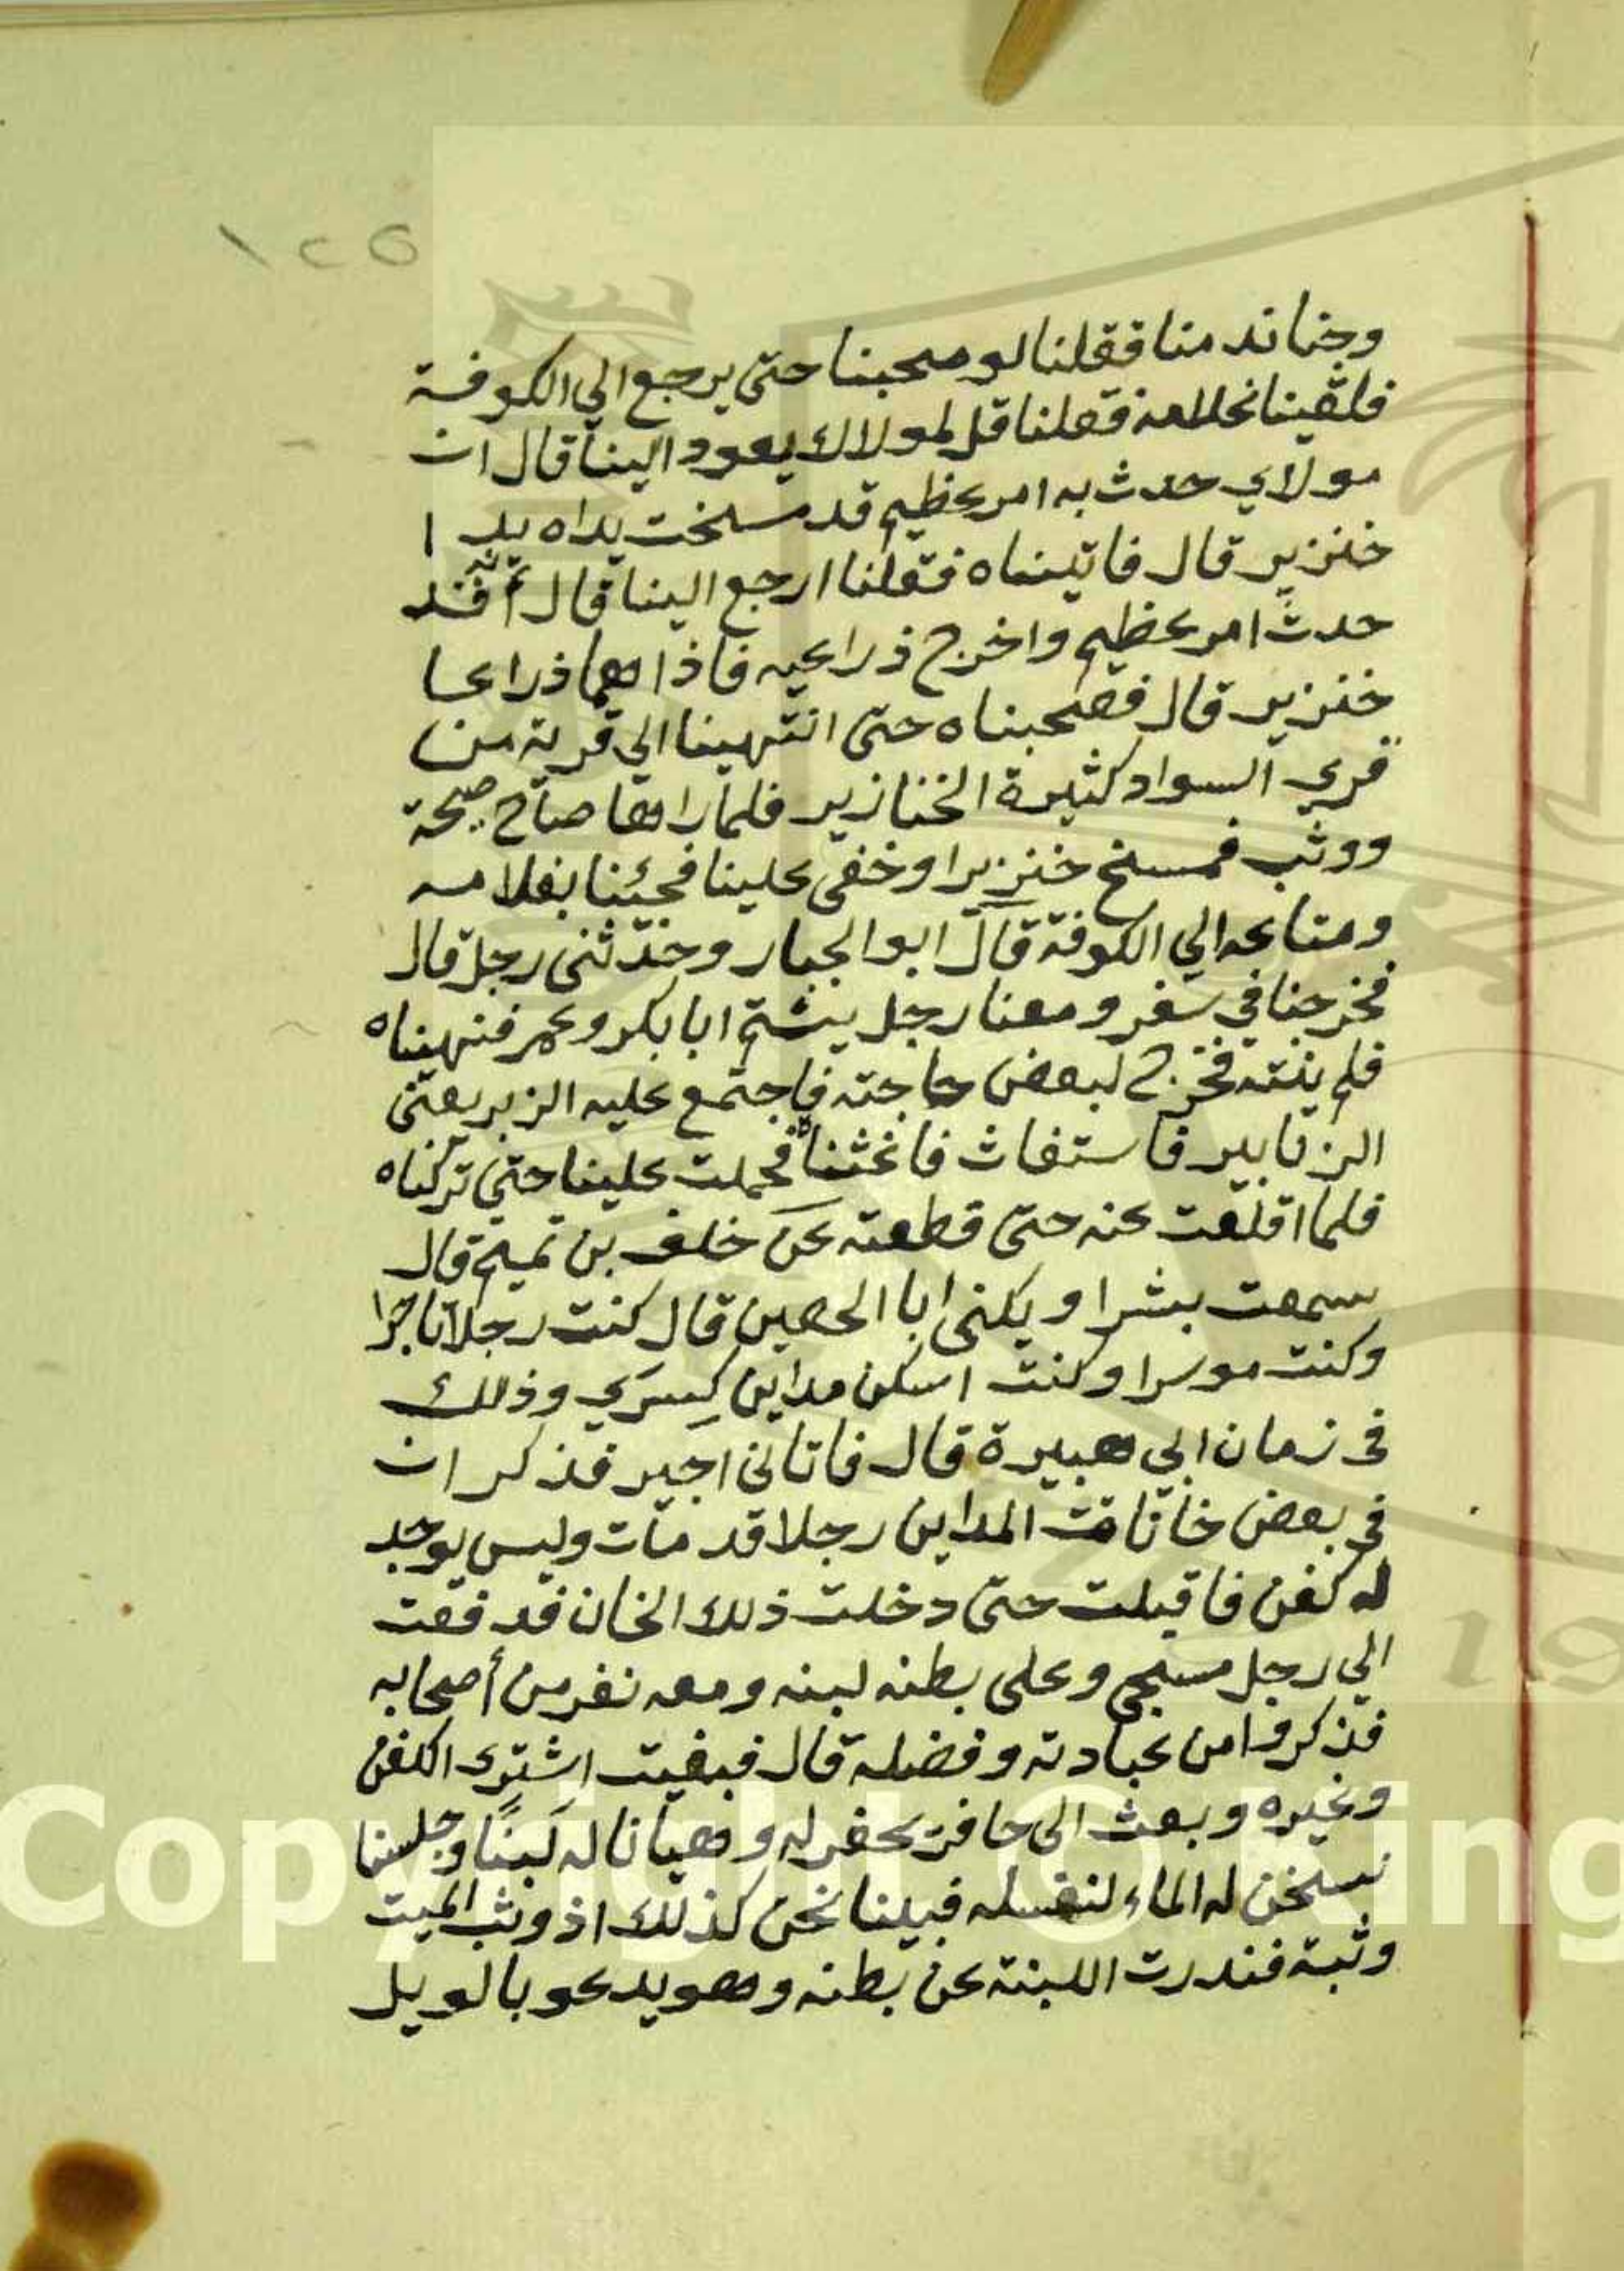 ١٢٥
وجنا ندمنا فقلنا لو صحبنا حتى يرجع الي الكوفة
فلقينا غلامه فقلنا قل لمولاك يعود الينا قال ان
مولاي حدث به امر عظيم قد مسخت يداه يدا
خنزير قال فاتيناه فقلنا ارجع الينا قال
حدث امر عظيم واخرج ذراعيه فاذا هما ذراعا
خنزير قال فصحبناه حتى انتهينا الي قرية من
قري السواد كثيرة الخنازير فلما راها صاح صيحة
ووثب فمسخ خنزيرا وخفى علينا فجئنا بغلامه
ومتاعه الي الكوفة قال ابو الجبار وحدثنى رجل قال
فخرجنا في سفر ومعنا رجل يشتم ابا بكر وعمر فنهيناه
فلم ينته فخرج لبعض حاجته فاجتمع عليه الزبر يعنى
الزنابير فاستغاث فاغثناه فحملت علينا حتى تركناه
فلما اقلعت عنه حتى قطعته عن خلف بن تميم قال
سمعت بشرا ويكنى ابا الحصين قال كنت رجلا تاجرا
وكنت موسرا وكنت اسكن مداين كِسرَي وذلك
فى زمان ابي هبيرة قال فاتانى اجير فذكر ان
فى بعض خانات المداين رجلا قد مات وليس يوجد
له كفن فاقبلت حتى دخلت ذلك الخان فدفعت
الي رجل مسجى وعلى بطنه لبنه ومعه نفر من أصحابه
فذكروا من عبادته وفضله قال فبعثت اشترى الكفن
وغيره وبعث الى حافر يحفر له وهيانا له لَبنًا وجلسنا
نسخن له الماء لنغسله فبينا نحن كذلك اذ وثب الميت
وثبة فندرت اللبنة عن بطنه وهو يدعو بالويل
Copyright © King
19